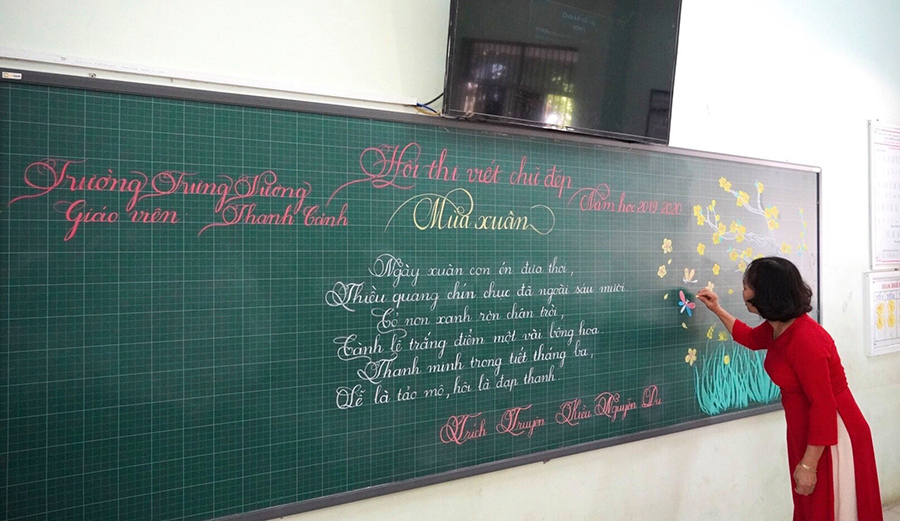 Trường Trưng Vương
Giáo viên Thanh Cảnh
Hội thi viết chữ đẹp
Năm học 2019-2020
Mùa xuân
Ngày xuân con én đưa thoi,
Thiều quang chín chục đã ngoài sáu mươi
Cỏ non xanh rợn chân trời,
Cành lê trắng điểm một vài bông hoa
Thanh minh trong tiết tháng ba,
Lễ là tảo mộ, hội là đạp thanh.
Trích Truyện Kiều Nguyễn Du